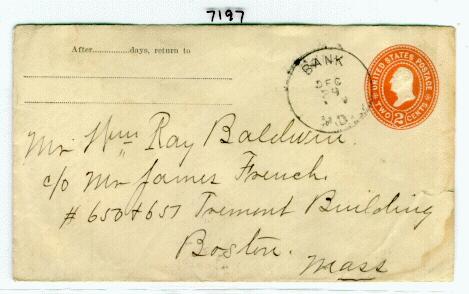 7197
After..............days, return to
BANK
DEC
29
M.D.
UNITED STATES POSTAGE
2
TWO CENTS
Mr Wm Ray Baldwin.
c/o Mr James French.
# 650 & 651 Tremont Building
Boston.
Mass